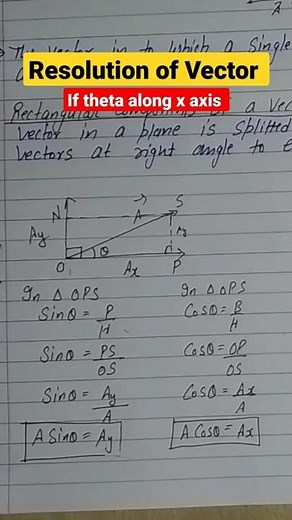 A
The vector in to which a Single
Resolution of Vector
If theta along x axis
Rectangular components of a Vec
vector in a plane is Splitted
Vectors at right angle to e
N
A
S
Ay
Ay
O
θ
Ax
P
In Δ OPS
Sinθ = P/H
Sinθ = PS/OS
Sinθ = Ay/A
A Sinθ = Ay
In Δ OPS
Cosθ = B/H
Cosθ = OP/OS
Cosθ = Ax/A
A Cosθ = Ax